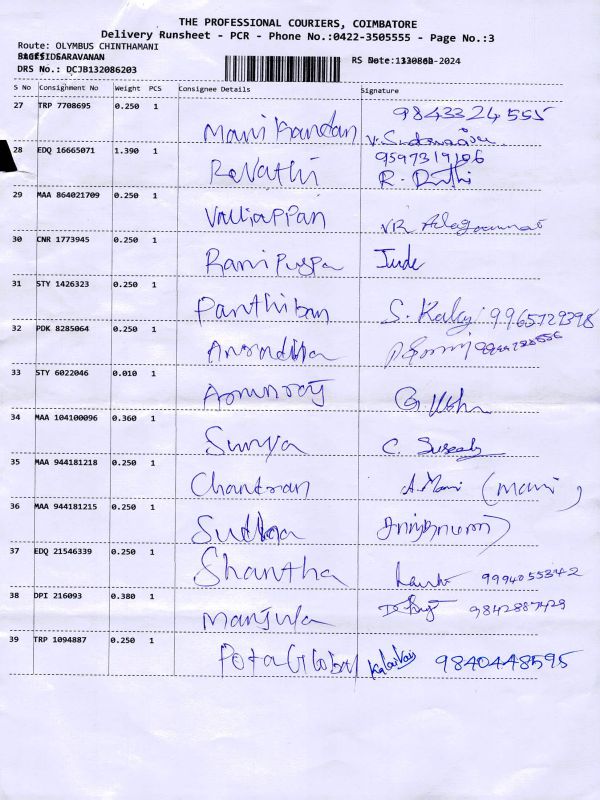 THE PROFESSIONAL COURIERS, COIMBATORE
Delivery Runsheet - PCR - Phone No.:0422-3505555 - Page No.:3
Route: OLYMBUS CHINTHAMANI
SARAVANAN
DRS No.: DCJB132086203
S No Consignment No Weight PCS Consignee Details Signature
27 TRP 7708695 0.250 1 Manikandan 9843324555
28 EDQ 16665071 1.390 1 Revathi
29 MAA 864021709 0.250 1 Valliappan
30 CNR 1773945 0.250 1 Rani Puspa Jude
31 STY 1426323 0.250 1 Parthiban S. Kalay 9965729398
32 PDK 8285064 0.250 1 Anradha
33 STY 6022046 0.010 1 Arunraj G. Usha
34 MAA 104100096 0.360 1 Surya C. Suresh
35 MAA 944181218 0.250 1 Chandran A. Mani (Mani)
36 MAA 944181215 0.250 1 Sudha
37 EDQ 21546339 0.250 1 Shantha 9994055342
38 DPI 216093 0.380 1 Manjula 9842887429
39 TRP 1094887 0.250 1 Pota Global 9840448595